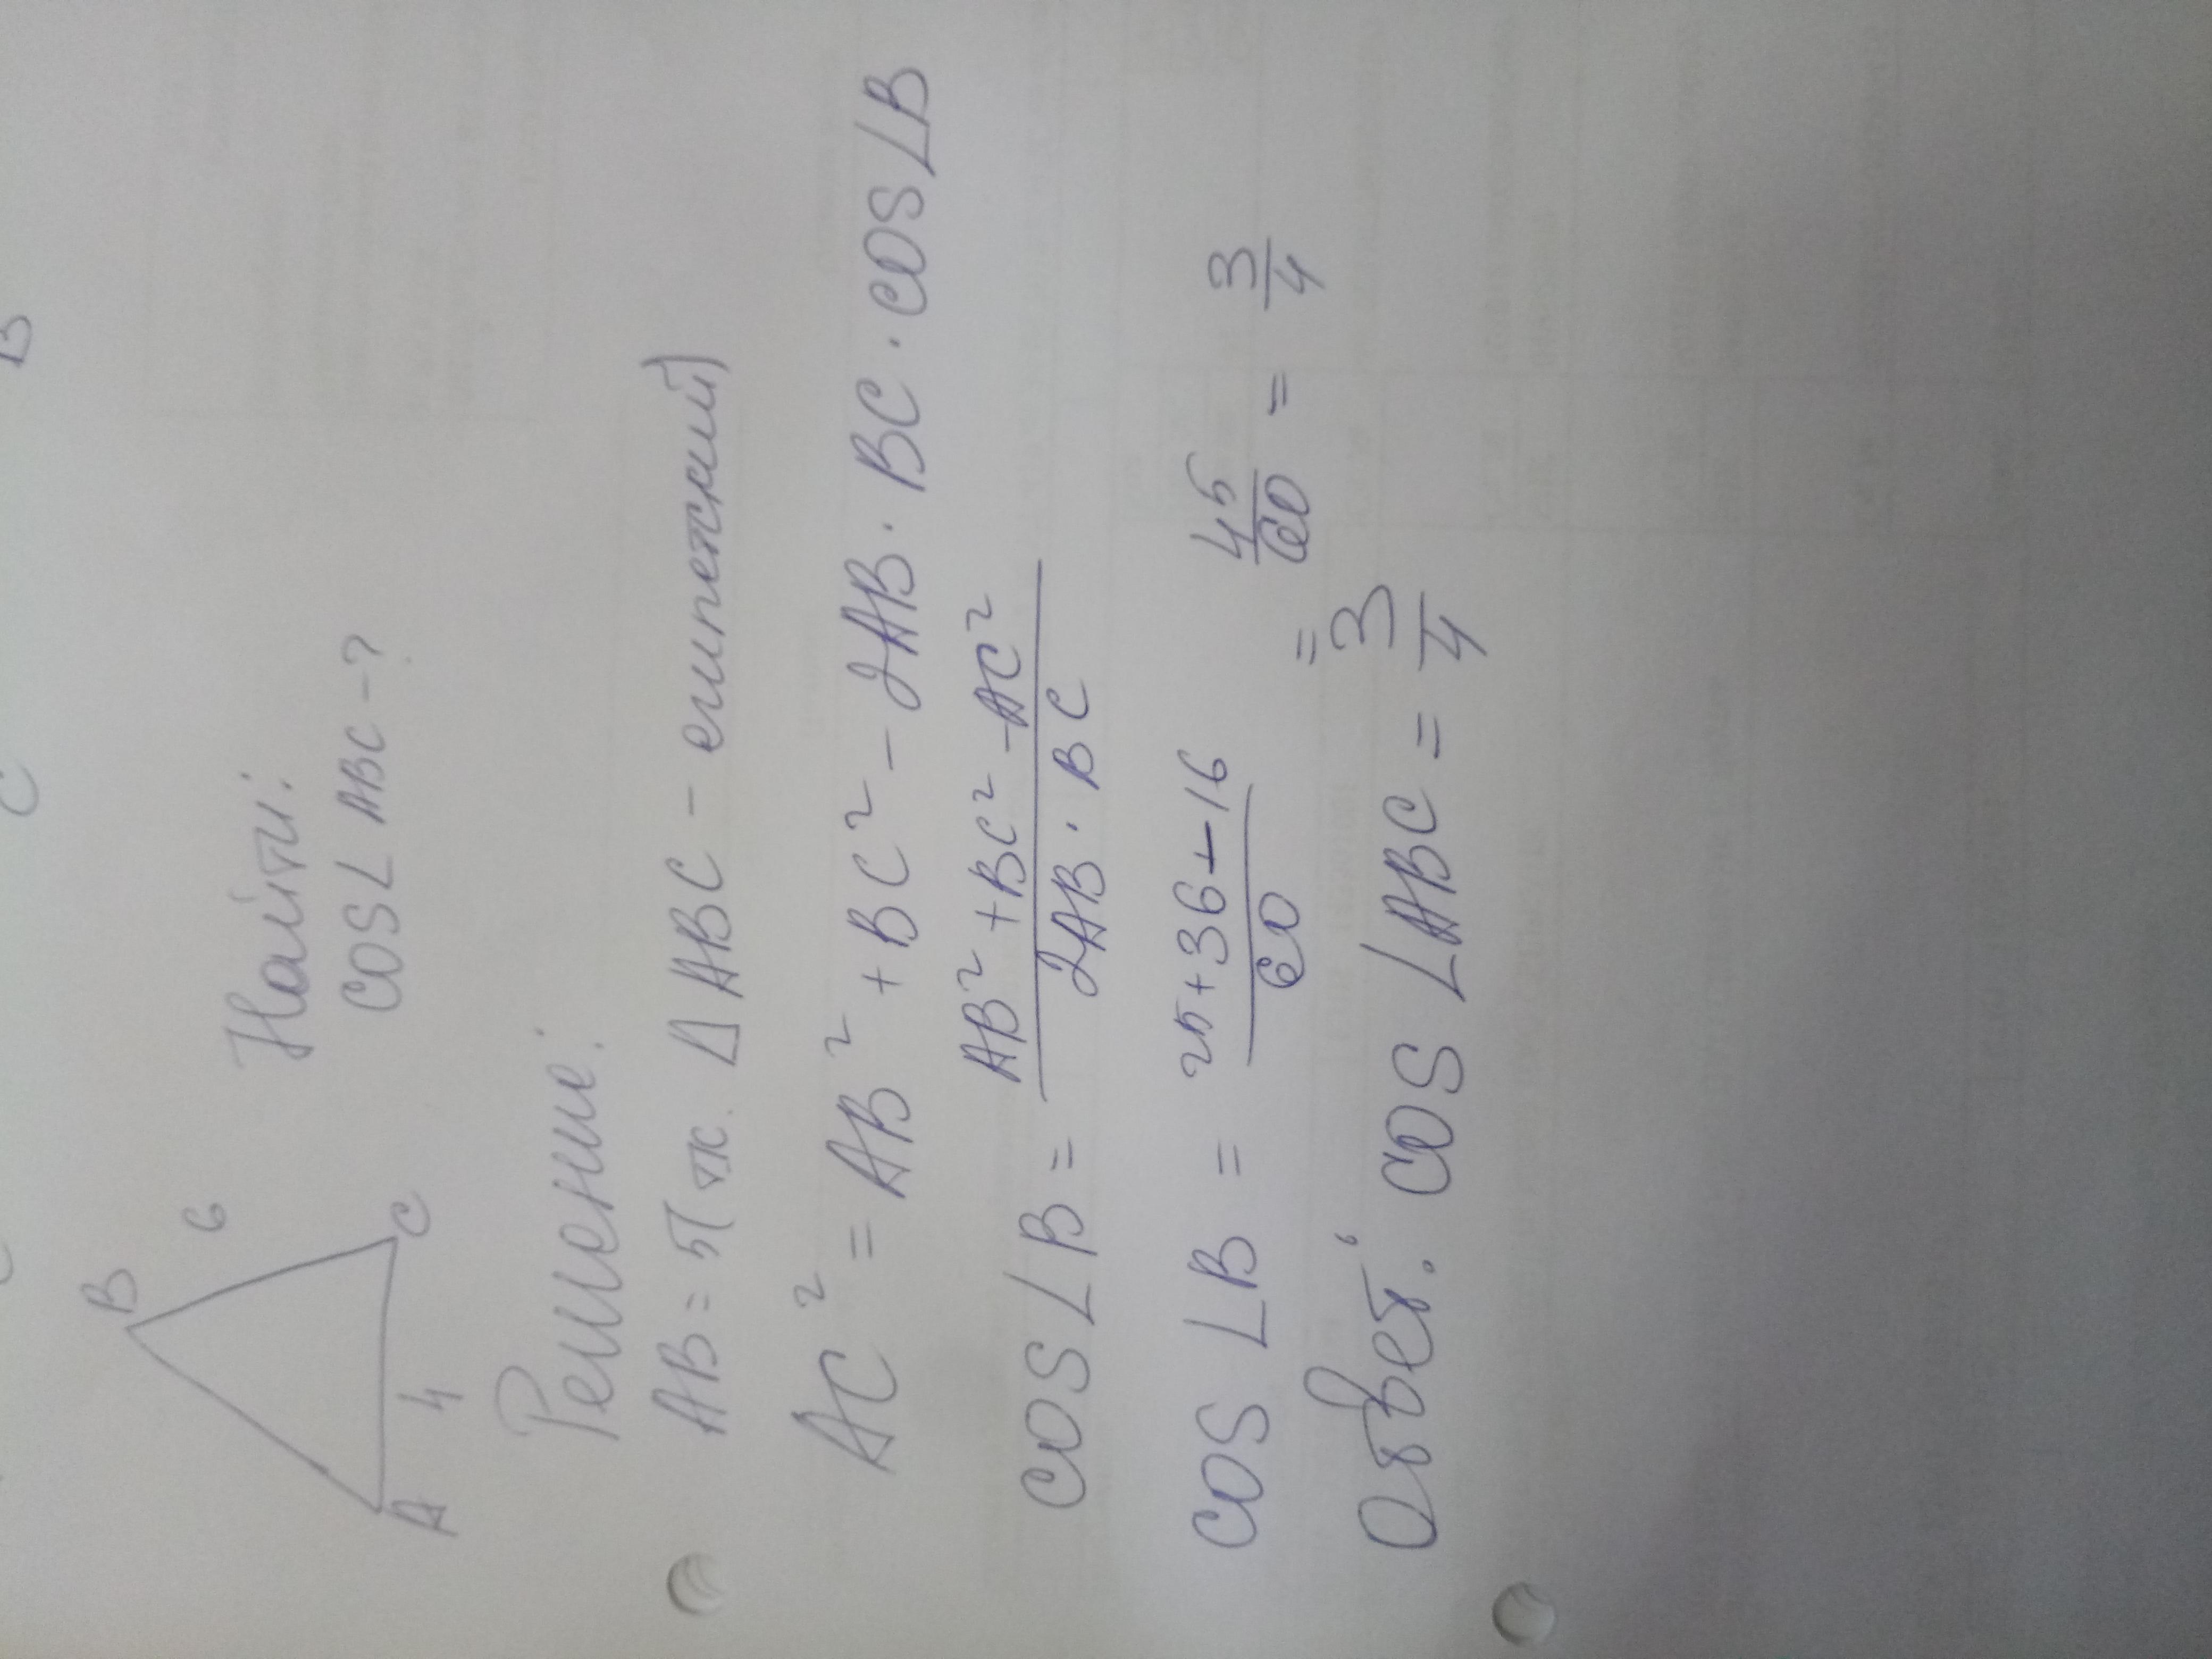 C
B
B
6
A
4
C
Найти:
cos ∠ ABC - ?
Решение:
AB = 5 (тк. Δ ABC - египетский)
AC² = AB² + BC² - 2AB · BC · cos ∠B
cos ∠B = AB² + BC² - AC² / 2AB · BC
cos ∠B = 25 + 36 - 16 / 60 = 45/60 = 3/4
Ответ: cos ∠ABC = 3/4